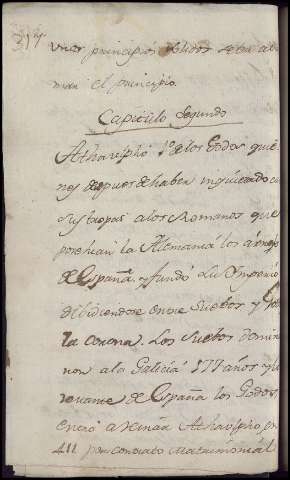 unos principios
man el principio.
Capitulo Segundo
Athaulpho 1º de los Godos quie
nes despues de haber inquietado con
sus tropas a los Romanos que
posehian la Alemania los
de España, y fundó su Ymperio
dibidiendose entre Suebos y
la corona. Los Suebos domina
ron a la Galicia 177 años y lo
restante de España los Godos,
entró a reinar Athaulpho en
411 por contrato Matrimonial